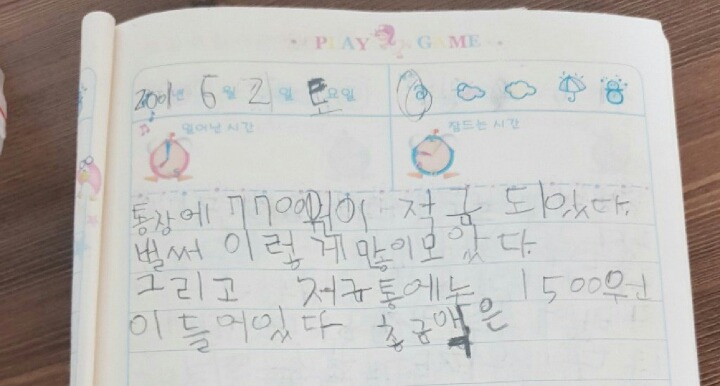 PLAY GAME
2001년 6월 2일 토요일
일어난 시간
잠드는 시간
통장에 7700원이 저금 되있다.
벌써 이렇게많이모았다.
그리고 저금통에는 1500원
이 들어있다 총금액은